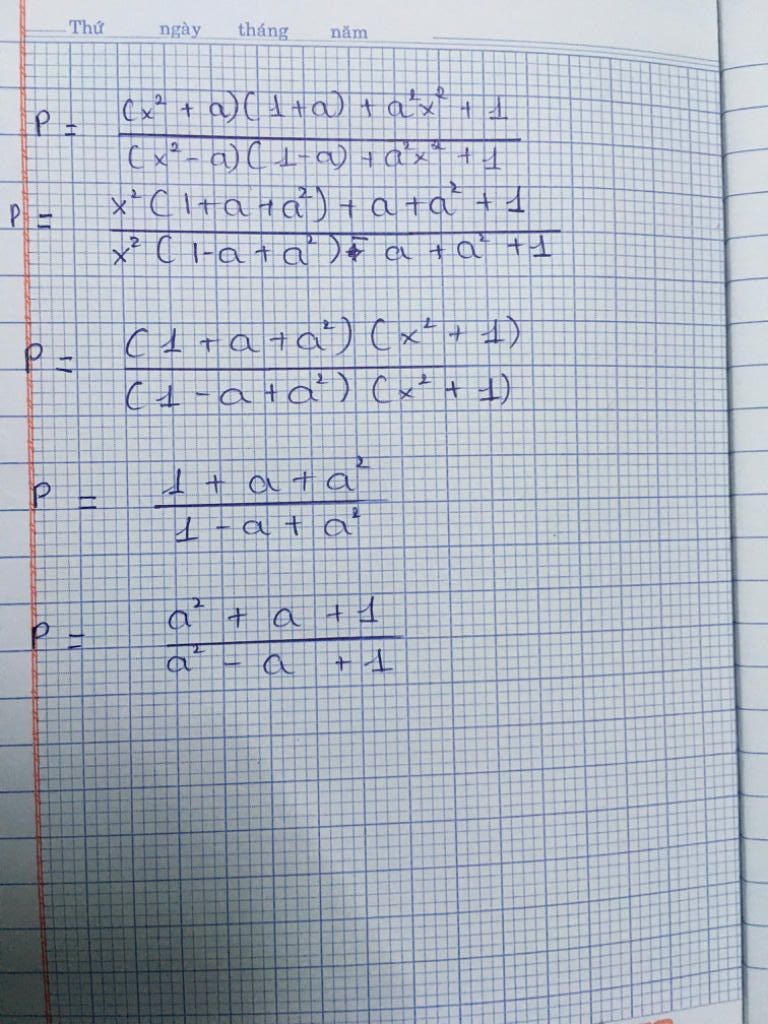 Thứ ngày tháng năm
P = \frac{(x² + a)(1+a) + a²x² + 1}{(x² - a)(1-a) + a²x² + 1}
P = \frac{x²(1+a+a²) + a+a² + 1}{x²(1-a+a²) - a + a² + 1}
P = \frac{(1 + a + a²)(x² + 1)}{(1 - a + a²)(x² + 1)}
P = \frac{1 + a + a²}{1 - a + a²}
P = \frac{a² + a + 1}{a² - a + 1}